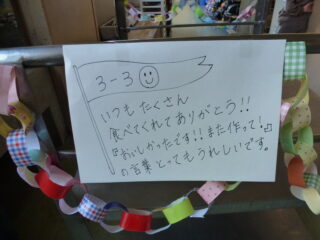 3-3
いつもたくさん
食べてくれてありがとう!!
『おいしかったです!!また作って!』
の言葉とってもうれしいです。